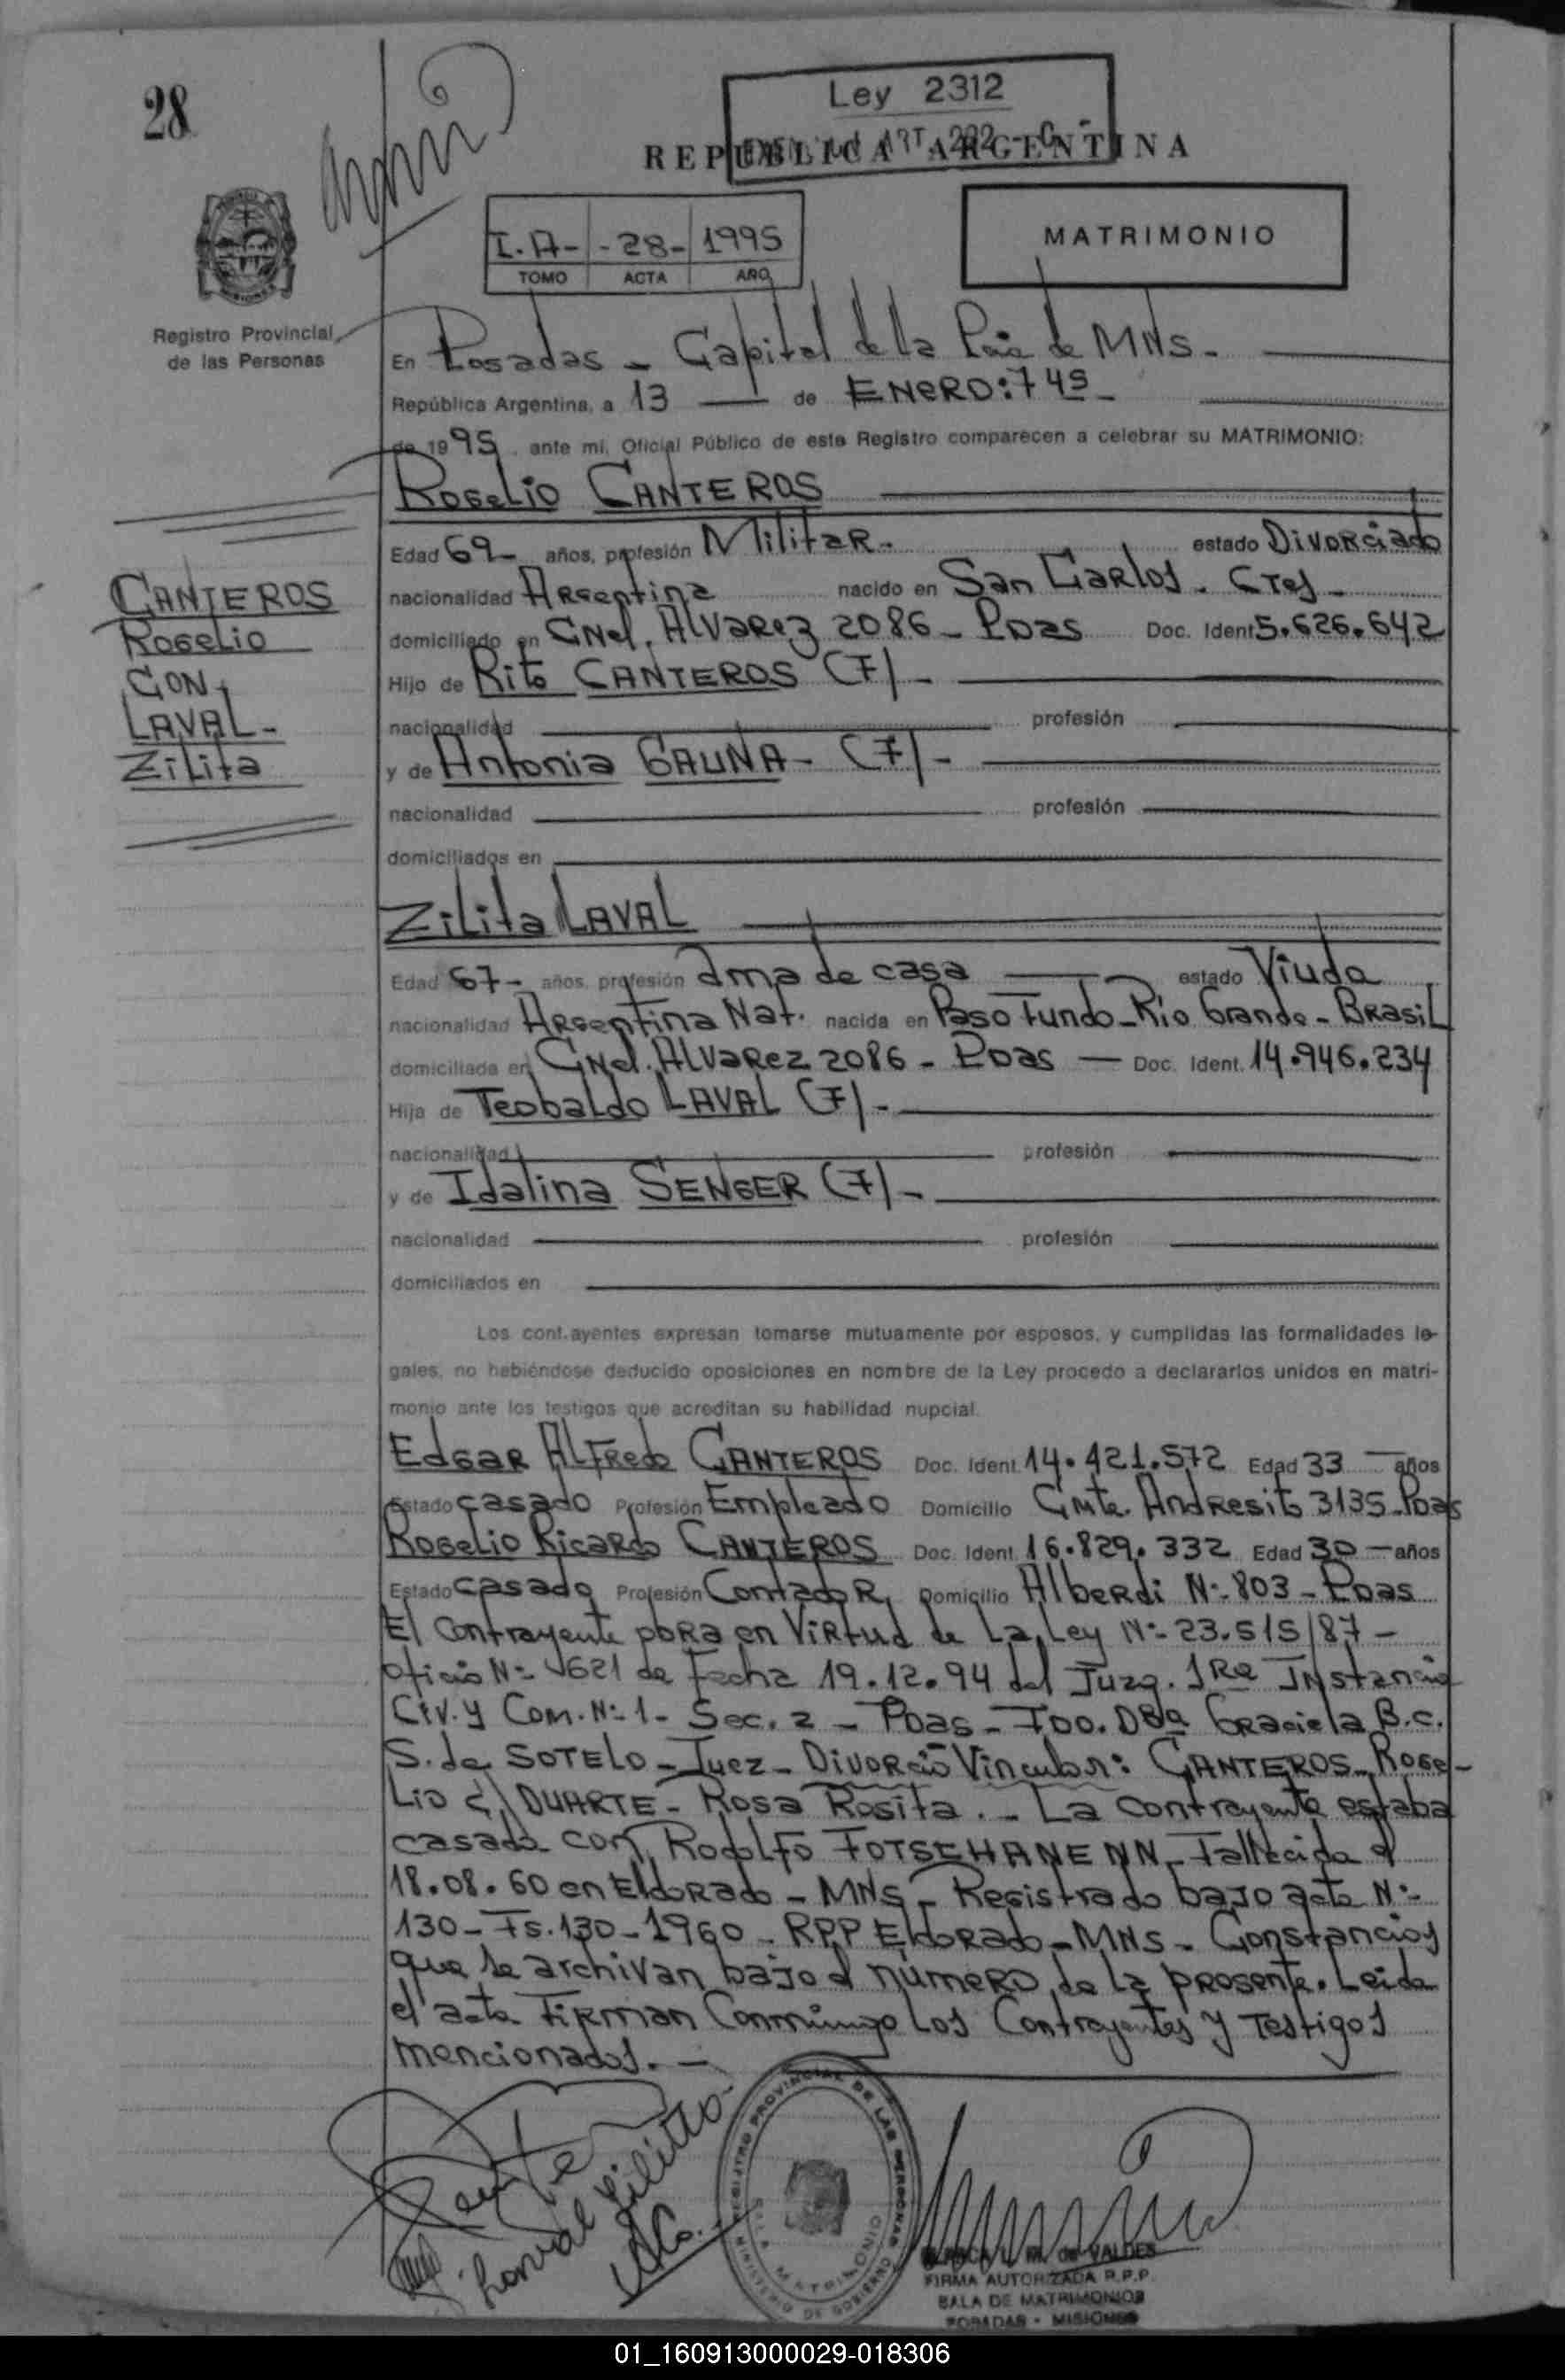 28
Ley 2312
REPUBLICA ARGENTINA
ART. 292
I.A- -28- 1995
TOMO ACTA AÑO
MATRIMONIO
Registro Provincial
de las Personas
En Posadas - Capital de la Pcia de MNs.-
República Argentina, a 13 de ENERO: 749-
de 1995, ante mi, Oficial Público de este Registro comparecen a celebrar su MATRIMONIO:
Rogelio CANTEROS
Edad 69- años, profesión Militar.- estado Divorciado
nacionalidad Argentina nacido en San Carlos. Ctes.-
domiciliado en Cnel. Alvarez 2086 - Pdas Doc. Ident 5.626.642
Hijo de Rito CANTEROS (F).-
nacionalidad profesión
y de Antonia GAUNA - (F).-
nacionalidad profesión
domiciliados en
CANTEROS
Rogelio
CON
LAVAL-
Zilita
Zilita LAVAL
Edad 67- años, profesión ama de casa estado Viuda
nacionalidad Argentina Nat. nacida en Paso Fundo - Rio Grande - Brasil
domiciliada en Cnel. Alvarez 2086 - Pdas - Doc. Ident. 14.946.234
Hija de Teobaldo LAVAL (F).-
nacionalidad profesión
y de Idalina SENGER (F).-
nacionalidad profesión
domiciliados en
Los contrayentes expresan tomarse mutuamente por esposos, y cumplidas las formalidades le-
gales, no habiéndose deducido oposiciones en nombre de la Ley procedo a declararlos unidos en matri-
monio ante los testigos que acreditan su habilidad nupcial.
Edgar Alfredo CANTEROS Doc. Ident. 14.421.572 Edad 33 años
Estado casado Profesión Empleado Domicilio Cmte. Andresito 3135-Pdas
Rogelio Ricardo CANTEROS Doc. Ident. 16.829.332 Edad 30 años
Estado casado Profesión Contador Domicilio Alberdi N:- 803 - Pdas
El contrayente obra en Virtud de La Ley N:- 23.515/87 -
oficio N:- 621 de Fecha 19.12.94 del Juzg. 1Ra Instancia
Civ. y Com. N:- 1 - Sec. 2 - Pdas - Fdo. DRa Graciela B.C.
S. de SOTELO - Juez - Divorcio Vincular: CANTEROS - Roge-
Lio c/ DUARTE - Rosa Rosita. - La contrayente estaba
casada con Rodolfo FOTSEHANENN - Fallecido el
18.08.60 en Eldorado - MNS - Registrado bajo acta N:-
130 - Fs. 130 - 1960 - RPP Eldorado - MNS - Constancias
que se archivan bajo el número de la presente. Leida
el acta Firman Conmigo Los Contrayentes y Testigos
mencionados. -
REGISTRO PROVINCIAL DE LAS PERSONAS
MINISTERIO DE GOBIERNO
SALA MATRIMONIO
de VALDES
FIRMA AUTORIZADA R.P.P.
SALA DE MATRIMONIOS
POSADAS - MISIONES
01_160913000029-018306